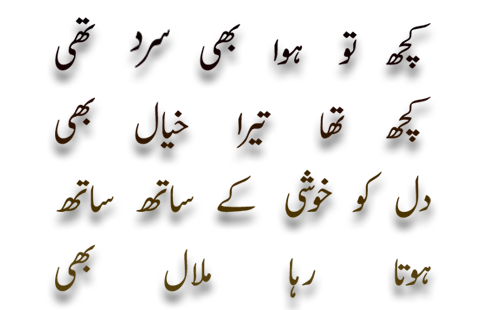 کچھ تو ہوا بھی سرد تھی
کچھ تھا تیرا خیال بھی
دل کو خوشی کے ساتھ ساتھ
ہوتا رہا ملال بھی